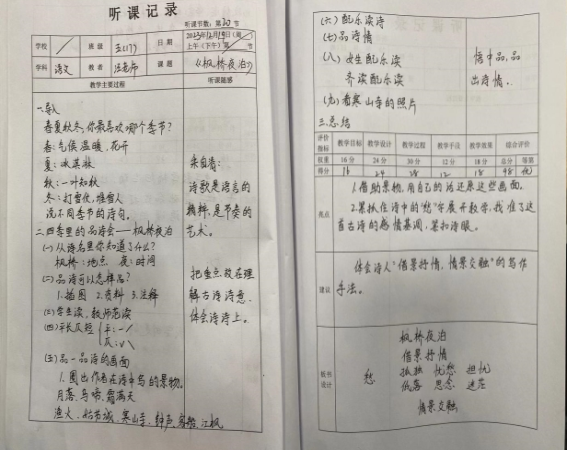 听课记录
听课节数：第30节
学校 / 班级 三(17) 日期 2023年12月19日(周二)
上午(下午)第 节
学科 语文 教者 汪老师 课题 《枫桥夜泊》
教学主要过程 听课随感
一、导入
春夏秋冬,你最喜欢哪个季节?
春:气候温暖,花开
夏:冰淇淋
秋:一叶知秋
冬:打雪仗,堆雪人
说不同季节的诗句。
二、四季里的品诗会——枫桥夜泊
(一)从诗名里你知道了什么?
枫桥:地点 夜:时间
(二)品诗可以怎样品?
1.插图 2.资料 3.注释
(三)学生读,教师范读
(四)平长仄短 平:—/
仄:∨\
(五)品一品诗的画面
1.圈出作者在诗中写的景物。
月落、乌啼、霜满天
渔火、姑苏城、寒山寺、钟声、客船、江枫
来自者:
诗歌是语言的
精粹,是节奏的
艺术。
把重点放在理
解古诗诗意、
体会诗情上。
(六)配乐读诗
(七)品诗情
(八)女生配乐读
齐读配乐读
(九)看寒山寺的照片
三、总结
悟中品,品
出诗情。
评价指标 教学目标 教学设计 教学过程 教学手段 教学效果 综合评价
权重 16分 24分 30分 12分 18分 总分 等第
得分 16 24 28 12 18 98 优
亮点
1.借助景物,用自己的话还原这些画面。
2.紧抓住诗中的“愁”字展开教学,找准了这
首古诗的感情基调,紧扣诗眼。
建议
体会诗人“借景抒情,情景交融”的写作
手法。
板书设计
枫桥夜泊
借景抒情
愁 孤独 忧愁 担忧
低落 思念 迷茫
情景交融